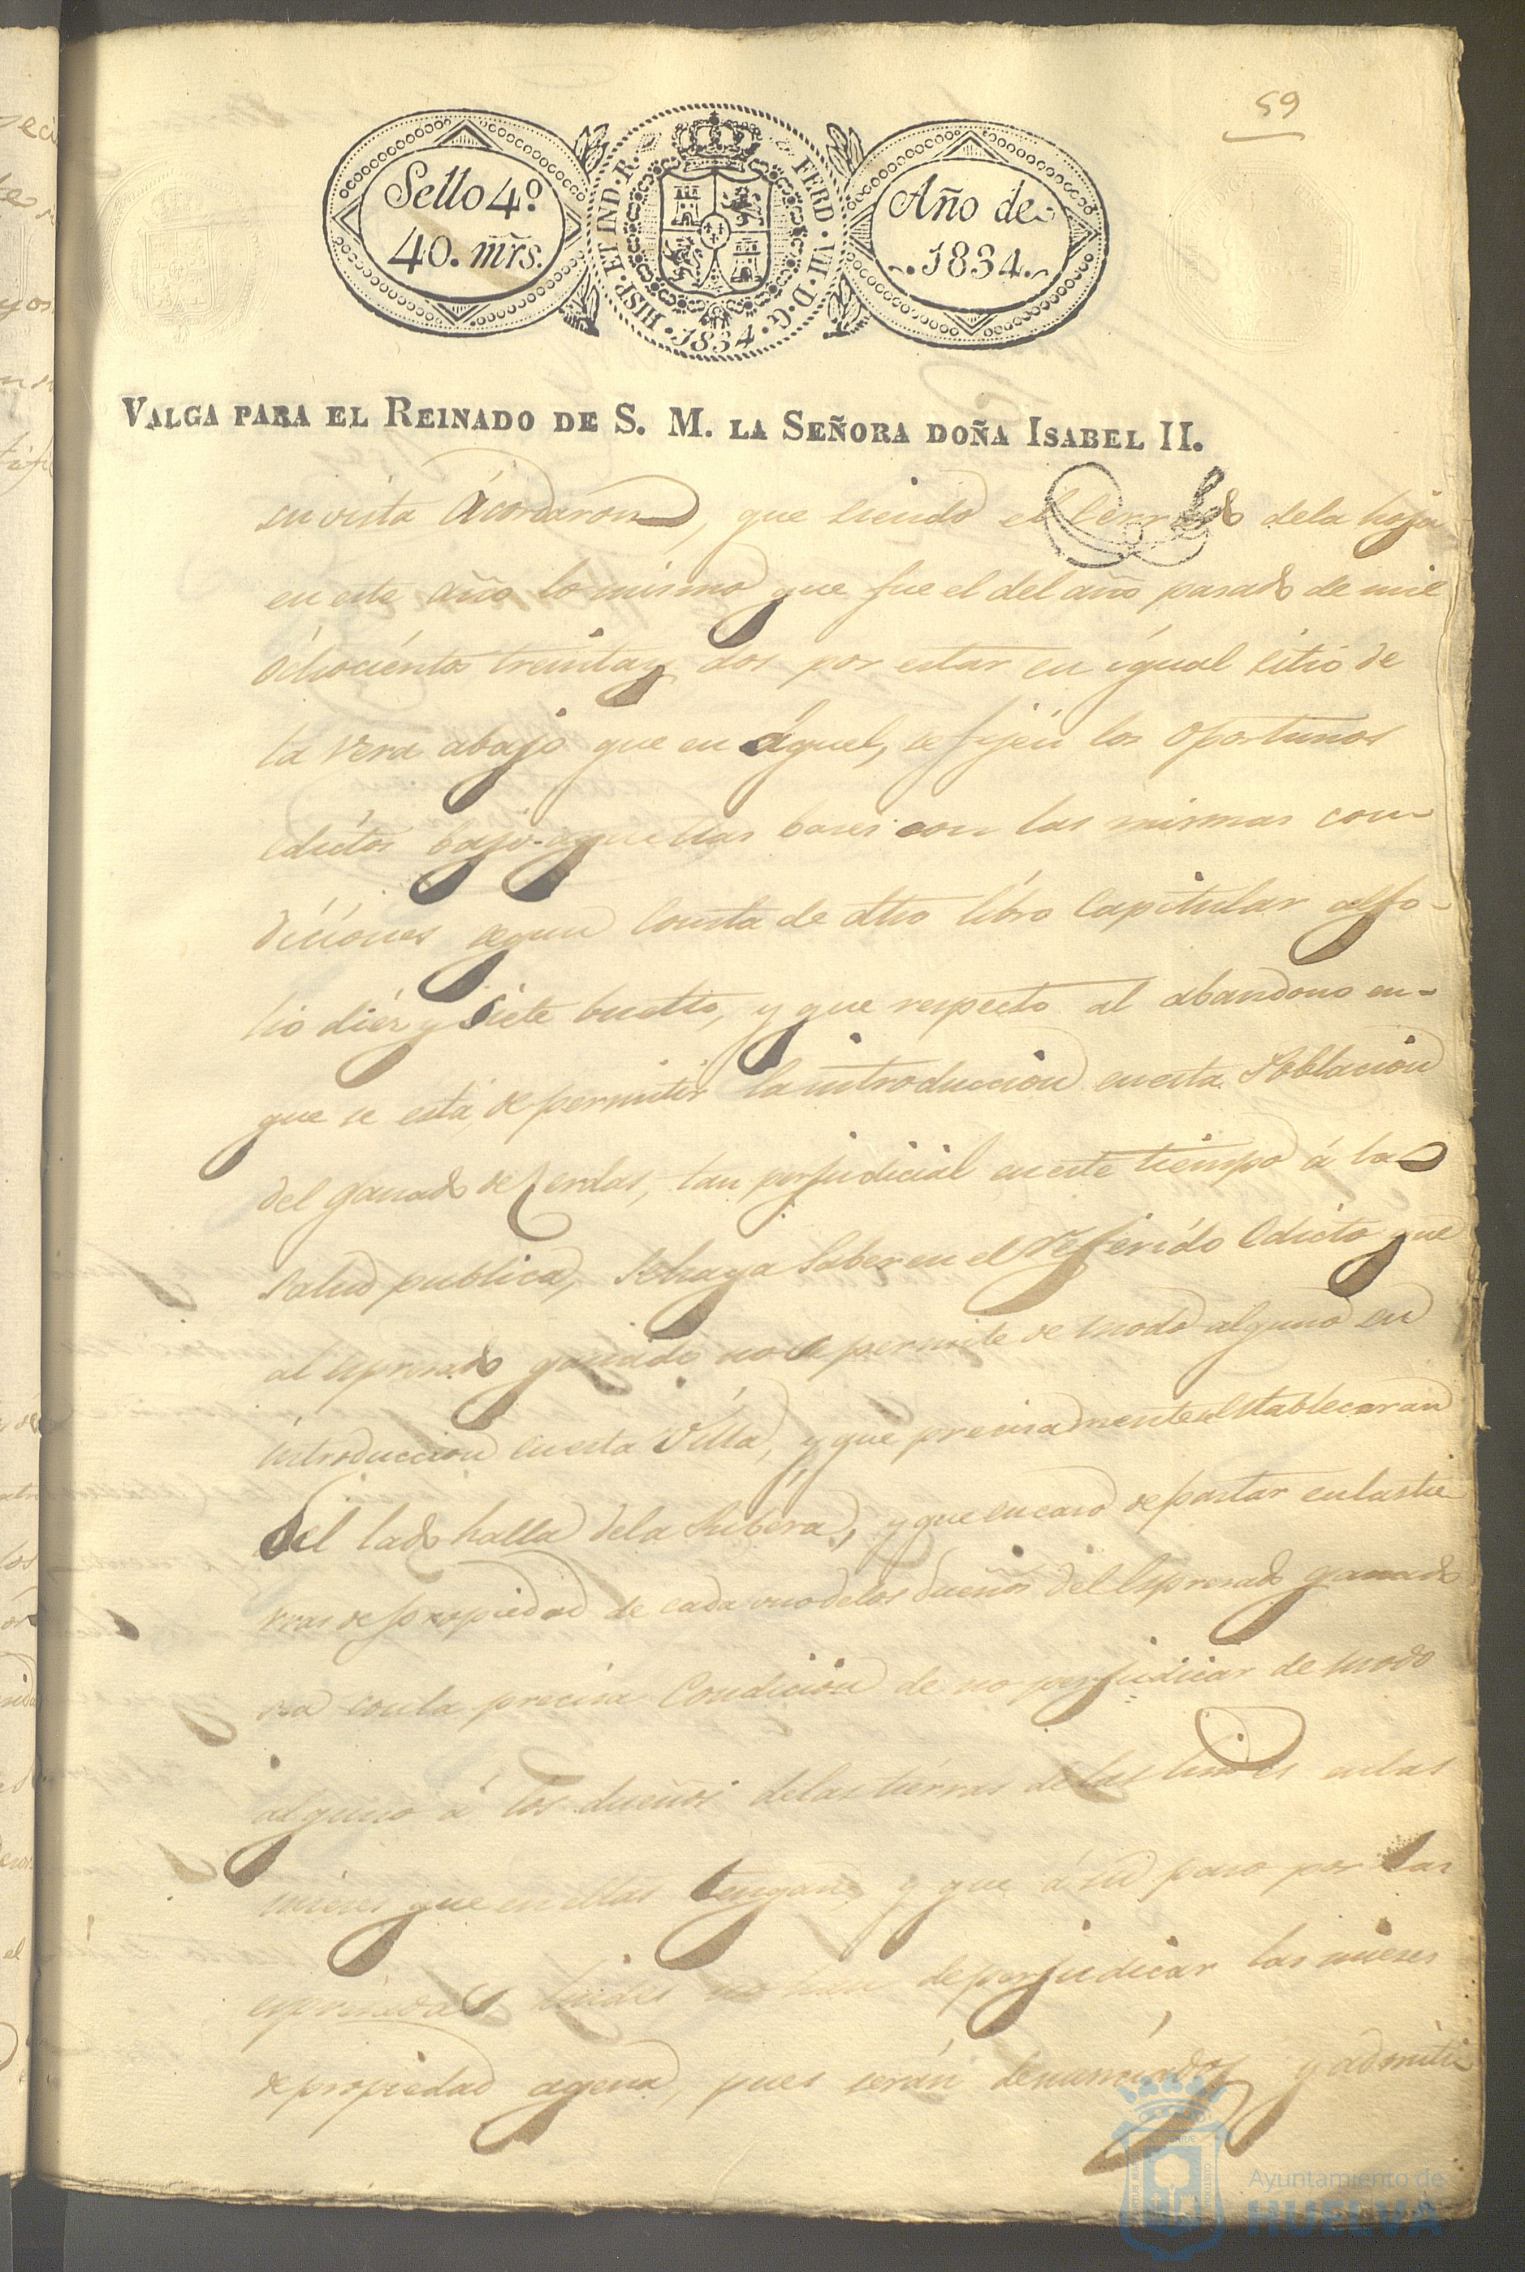 59
Sello 4º
40. mrs.
HISP. ET IND. R.
FERD. VII. D. G.
1834
Año de
1834.
VALGA PARA EL REINADO DE S. M. LA SEÑORA DOÑA ISABEL II.
su vista Acordaron, que siendo el Cerrado dela hoja
en este año lo mismo que fue el del año pasado de mil
óchocientos treinta y dos por estar en ígual sitio de
la Vera abajo que en áquel, se fijén los oportunos
edictos bajo aquellas bases con las mismas con-
diciones segun Consta de dho libro Capitular al fo-
lio diéz y siete buelto, y que respecto al abandono en-
que se está de permitir la introduccion en esta Poblacion
del ganado de Cerdas, tan perjudicial en este tiempo á la
salud publica, se haga saber en el referído Edicto que
al espresado ganado no se permite de modo alguno su
introduccion en esta Villa, y que precisamente estableceran
del lado halla dela Ribera, y que en caso de pastar en las tie
rras de propiedad de cada uno delos dueños del Espresado ganado
sea con la precisa Condicion de no perjudicar de modo
alguno á los dueños delas tierras delas lindes en las
mieses que en ellas tengan, y que á su paso por las
espresadas lindes no han de perjudicar las mieses
de propiedad agena, pues serán denunciados y admiti
Ayuntamiento de
HUELVA